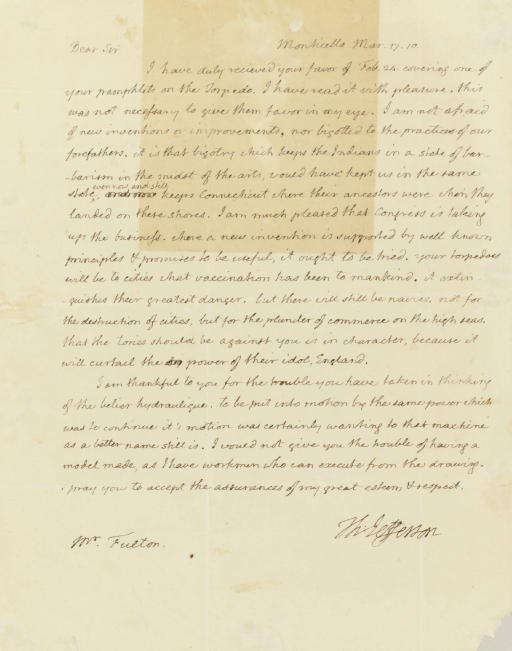 Dear Sir Monticello Mar. 17. 10.
I have duly recieved your favor of Feb. 24. covering one of
your pamphlets on the Torpedo. I have read it with pleasure. this
was not necessary to give them favor in my eye. I am not afraid
of new inventions or improvements, nor bigotted to the practices of our
forefathers. it is that bigotry which keeps the Indians in a state of bar-
-barism in the midst of the arts, would have kept us in the same
state even now, and still keeps Connecticut where their ancestors were when they
landed on these shores. I am much pleased that Congress is taking
up the business. where a new invention is supported by well known
principles & promises to be useful, it ought to be tried. your torpedoes
will be to cities what vaccination has been to mankind. it extin-
-guishes their greatest danger. but there will still be navies. not for
the destruction of cities, but for the plunder of commerce on the high seas.
that the tories should be against you is in character, because it
will curtail the power of their idol, England.
I am thankful to you for the trouble you have taken in thinking
of the belier hydraulique. to be put into motion by the same power which
was to continue it's motion was certainly wanting to that machine
as a better name still is. I would not give you the trouble of having a
model made, as I have workmen who can execute from the drawing.
I pray you to accept the assurances of my great esteem & respect.
Th: Jefferson
Mr. Fulton.